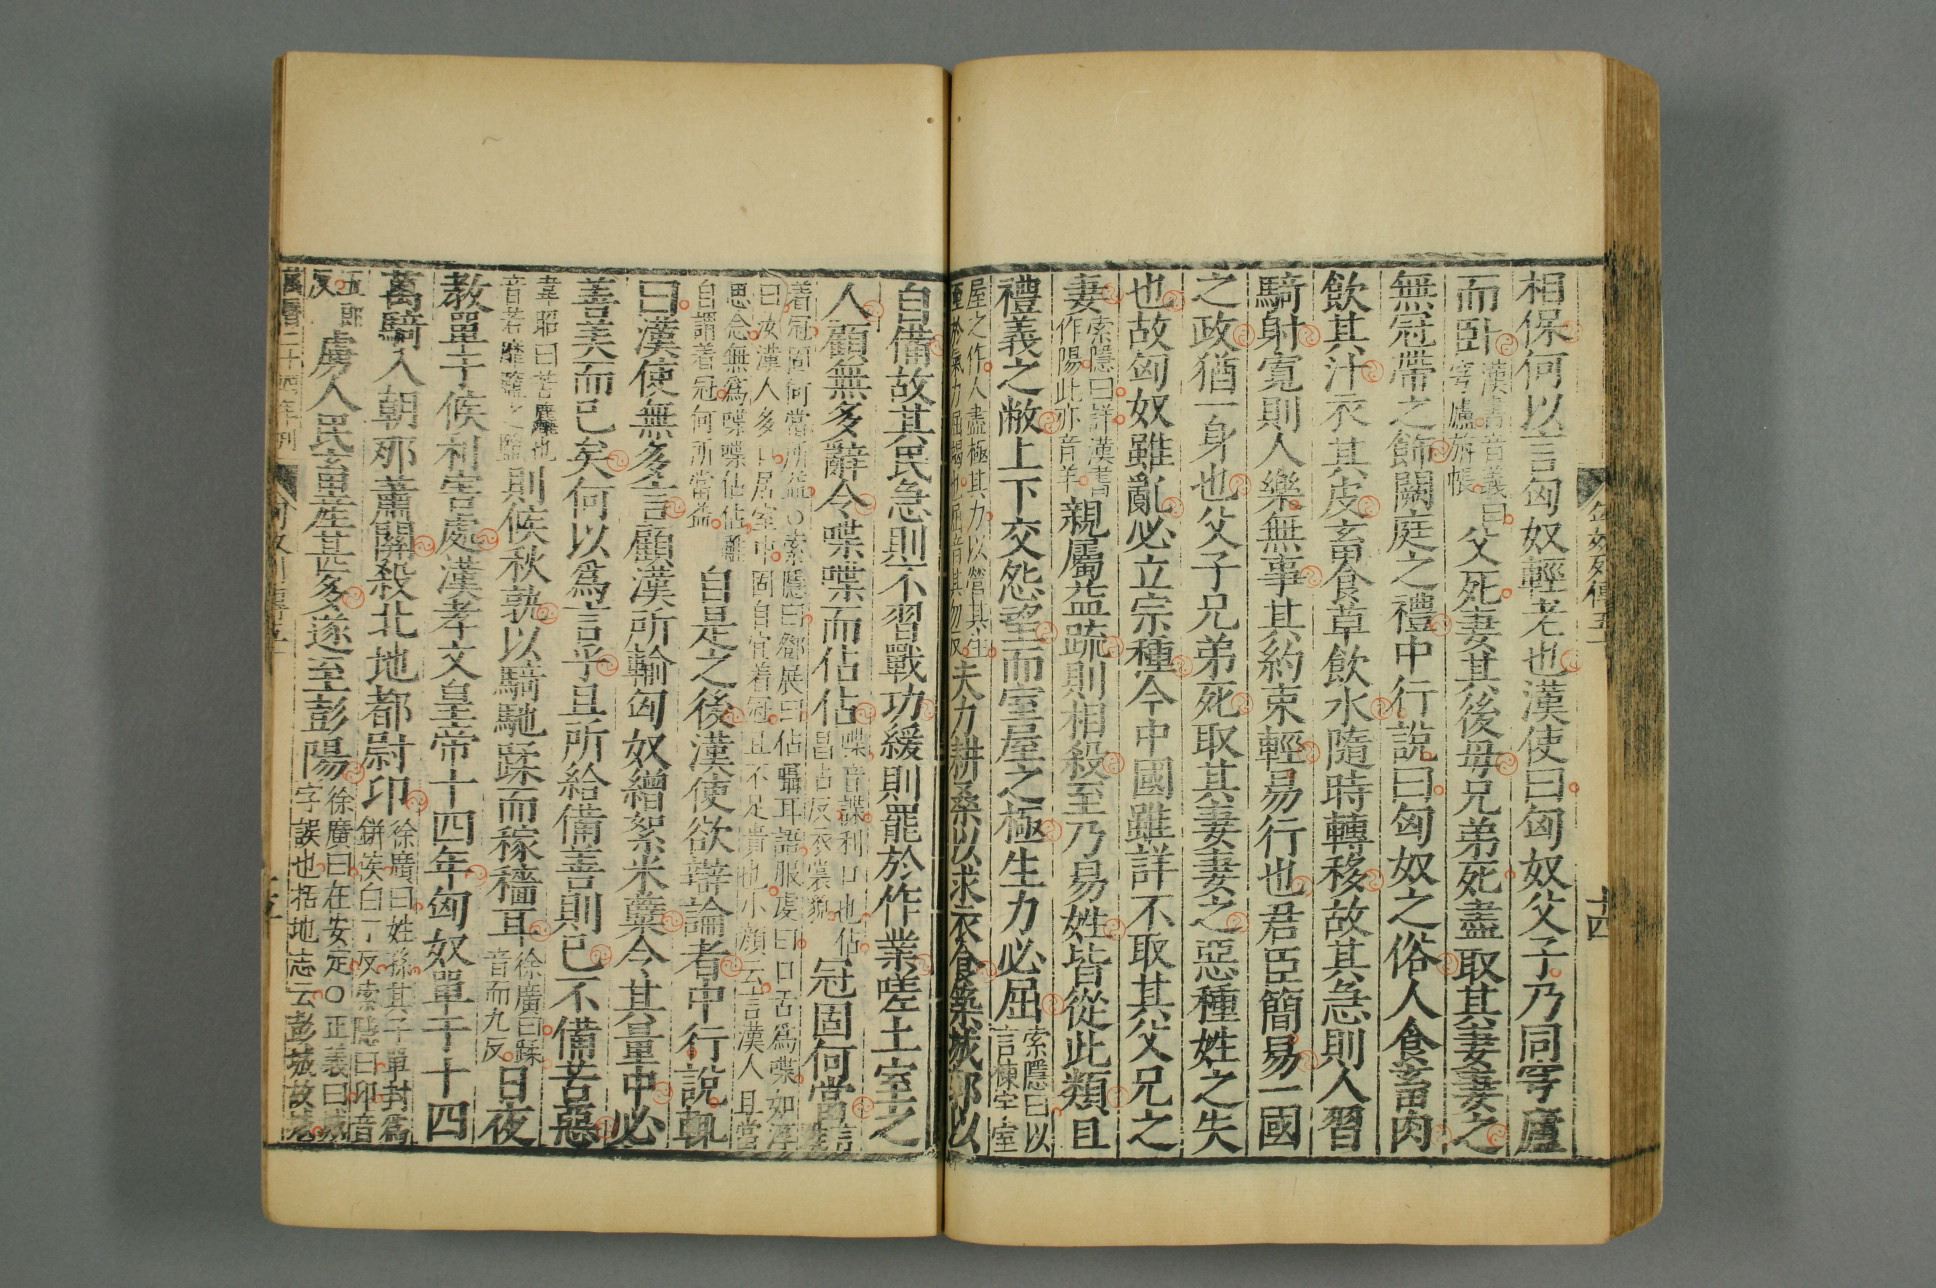 匈奴列傳五十
十四
相保何以言匈奴輕老也漢使曰匈奴父子乃同穹廬
而臥漢書音義曰穹廬旃帳父死妻其後母兄弟死盡取其妻妻之
無冠帶之飾闕庭之禮中行說曰匈奴之俗人食畜肉
飲其汁衣其皮畜食草飲水隨時轉移故其急則人習
騎射寬則人樂無事其約束輕易行也君臣簡易一國
之政猶一身也父子兄弟死取其妻妻之惡種姓之失
也故匈奴雖亂必立宗種今中國雖詳不取其父兄之
妻索隱曰詳漢書作陽此亦音羊親屬益疏則相殺至乃易姓皆從此類且
禮義之敝上下交怨望而室屋之極生力必屈索隱曰以言棟宇室
屋之作人盡極其力以營其生至於氣力屈竭也屈音其勿反夫力耕桑以求衣食築城郭以
自備故其民急則不習戰功緩則罷於作業嗟土室之
人顧無多辭令喋喋而佔佔喋音諜利口也佔昌占反衣裳貌冠固何當言雖
着冠固何當所益○索隱曰鄧展曰佔囁耳語服虔曰口舌爲喋如淳曰汝漢人多口居室中固自宜着冠且不足貴也小顏云言漢人且當
思念無爲喋喋佔佔雖自謂着冠何所當益自是之後漢使欲辯論者中行說輒
曰漢使無多言顧漢所輸匈奴繒絮米糵令其量中必
善美而已矣何以爲言乎且所給備善則已不備苦惡
韋昭曰苦麤也音若靡盬之盬則候秋孰以騎馳蹂而稼穡耳徐廣曰蹂音而九反日夜
教單于候利害處漢孝文皇帝十四年匈奴單于十四
萬騎入朝那蕭關殺北地都尉卬徐廣曰姓孫其子單封爲缾侯白丁反索隱曰卬音
五郎反虜人民畜產甚多遂至彭陽徐廣曰在安定○正義曰城字誤也括地志云彭城故城
萬曆二十四年刊